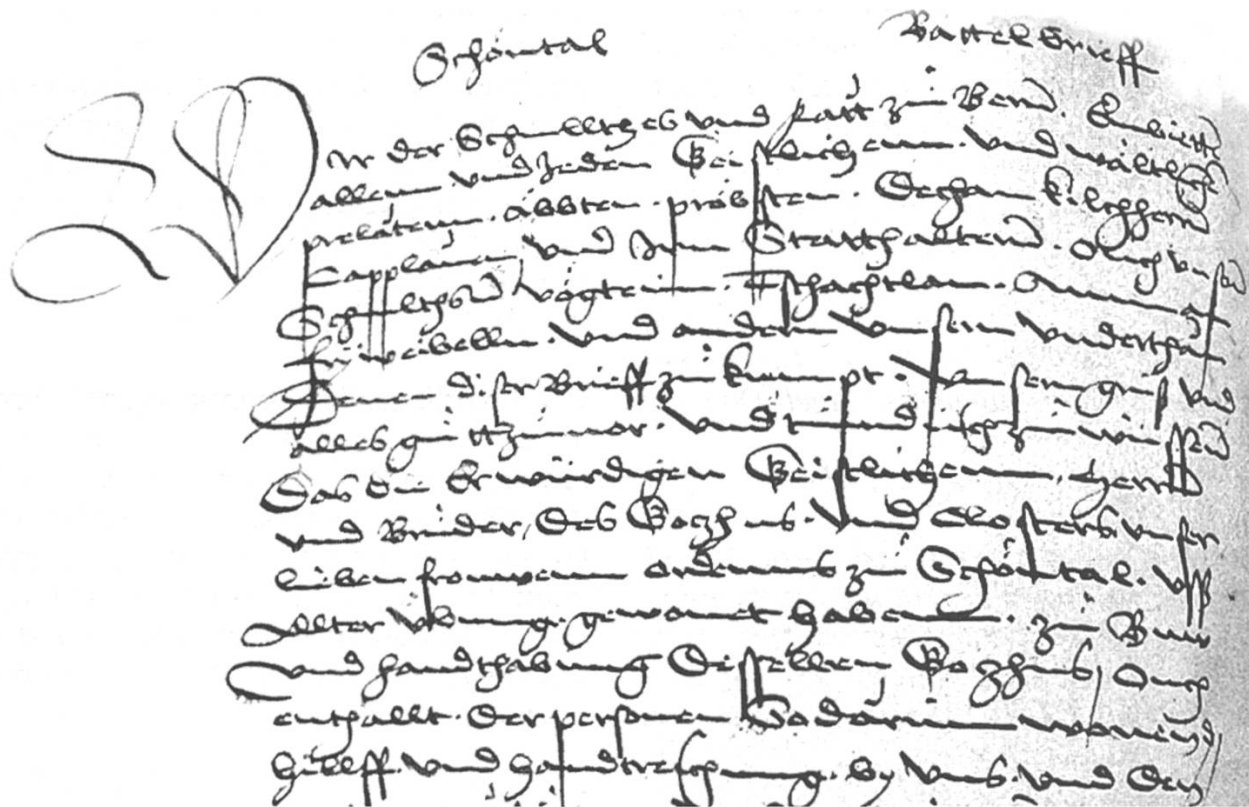 Schöntal Battel Brieff
Wir der Schullthes vnd Ratt zu Bernn. Enbietten
allenn vnd Jeden Geistlichenn. vnd wältlich
prelätenn. äbbten. pröbsten. Dechan kilchhernn
Capplänen, vnd Irnn Statthalternn. Ouch vnsern
Schulthesn vögtenn. Tschachtlan. Amman
frÿweibelln. vnd andern vnsern vnderthan
Denen diser Brieff zu kumpt. Vnsern grus vnd
alles gutt zuuor. vnd tund üch zu wüssen
Das die Erwürdigen Geistlichenn, herrn
vnd Brüder, des Gozhus. vnd Closters vnser
lieben frouwenn ordenns zu Schöntal. vff
allter übung. gewonet habenn. zu Buw
vnd handthabung desselben Gozhus, Ouch
enthallt. der personen So darinn wonend,
hilff. vnd handtreichung. by vns. vnd den